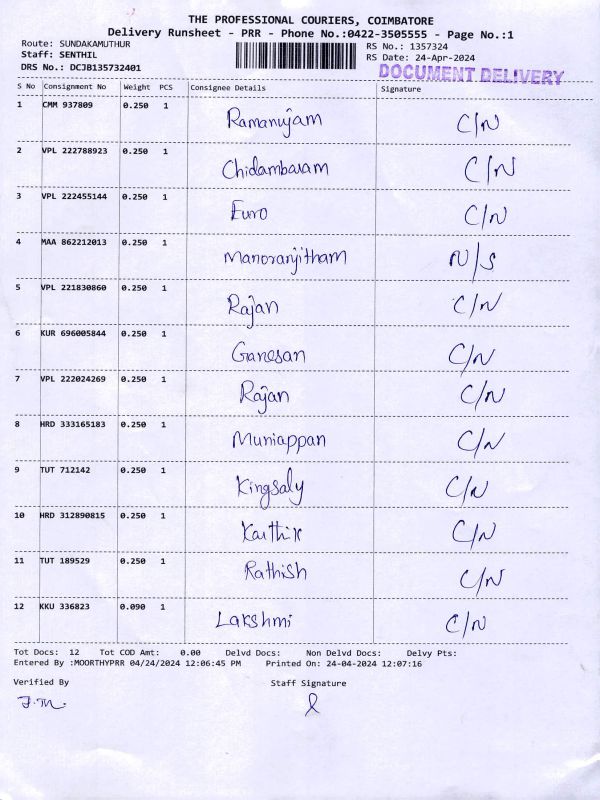 THE PROFESSIONAL COURIERS, COIMBATORE
Delivery Runsheet - PRR - Phone No.:0422-3505555 - Page No.:1
Route: SUNDAKAMUTHUR
RS No.: 1357324
Staff: SENTHIL
RS Date: 24-Apr-2024
DRS No.: DCJB135732401
DOCUMENT DELIVERY
S No Consignment No Weight PCS Consignee Details Signature
1 CMM 937809 0.250 1 Ramanujam C/N
2 VPL 222788923 0.250 1 Chidambaram C/N
3 VPL 222455144 0.250 1 Euro C/N
4 MAA 862212013 0.250 1 Manoranjitham N/S
5 VPL 221830860 0.250 1 Rajan C/N
6 KUR 696005844 0.250 1 Ganesan C/N
7 VPL 222024269 0.250 1 Rajan C/N
8 HRD 333165183 0.250 1 Muniappan C/N
9 TUT 712142 0.250 1 Kingsaly C/N
10 HRD 312890815 0.250 1 Karthik C/N
11 TUT 189529 0.250 1 Rathish C/N
12 KKU 336823 0.090 1 Lakshmi C/N
Tot Docs: 12 Tot COD Amt: 0.00 Delvd Docs: Non Delvd Docs: Delvy Pts:
Entered By :MOORTHYPRR 04/24/2024 12:06:45 PM Printed On: 24-04-2024 12:07:16
Verified By Staff Signature